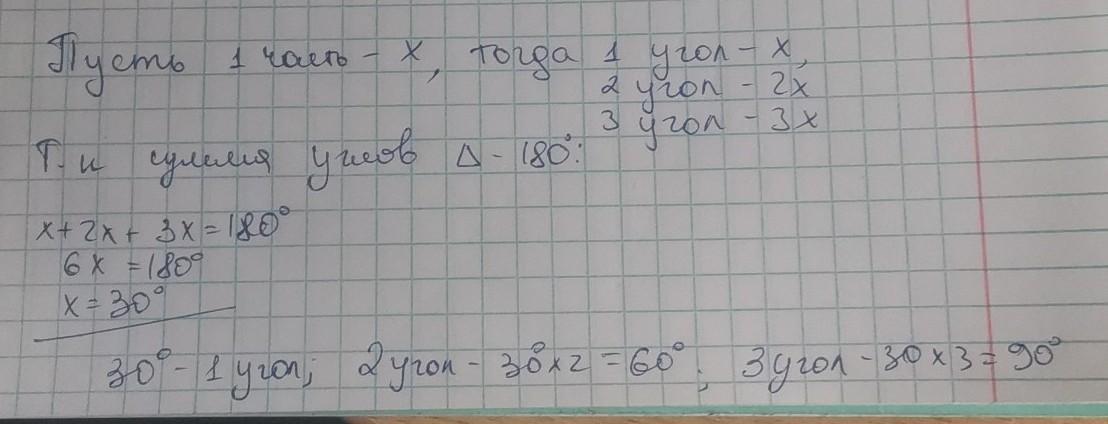 Пусть 1 часть - x, тогда 1 угол - x,
2 угол - 2x
3 угол - 3x
Т.к сумма углов Δ - 180°:
x + 2x + 3x = 180°
6x = 180°
x = 30°
30° - 1 угол; 2 угол - 30° x 2 = 60°; 3 угол - 30 x 3 = 90°